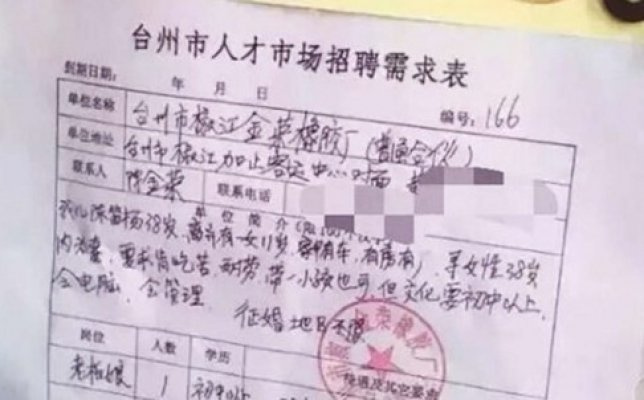 台州市人才市场招聘需求表
到期日期： 年 月 日 编号：166
单位名称 台州市椒江金荣橡胶厂（普通合伙）
单位地址 台州市椒江加止客运中心对面
联系人 陈金荣 联系电话
单位简介
我儿陈 38岁，离异有一女11岁，家有车，有房，寻女性38岁
内 ，要求肯吃苦耐劳，带一小孩也可，但文化要初中以上，
会电脑，会管理。
征婚地区不限
岗位 人数 学历 待遇及其它要求
老板娘 1 初中以上